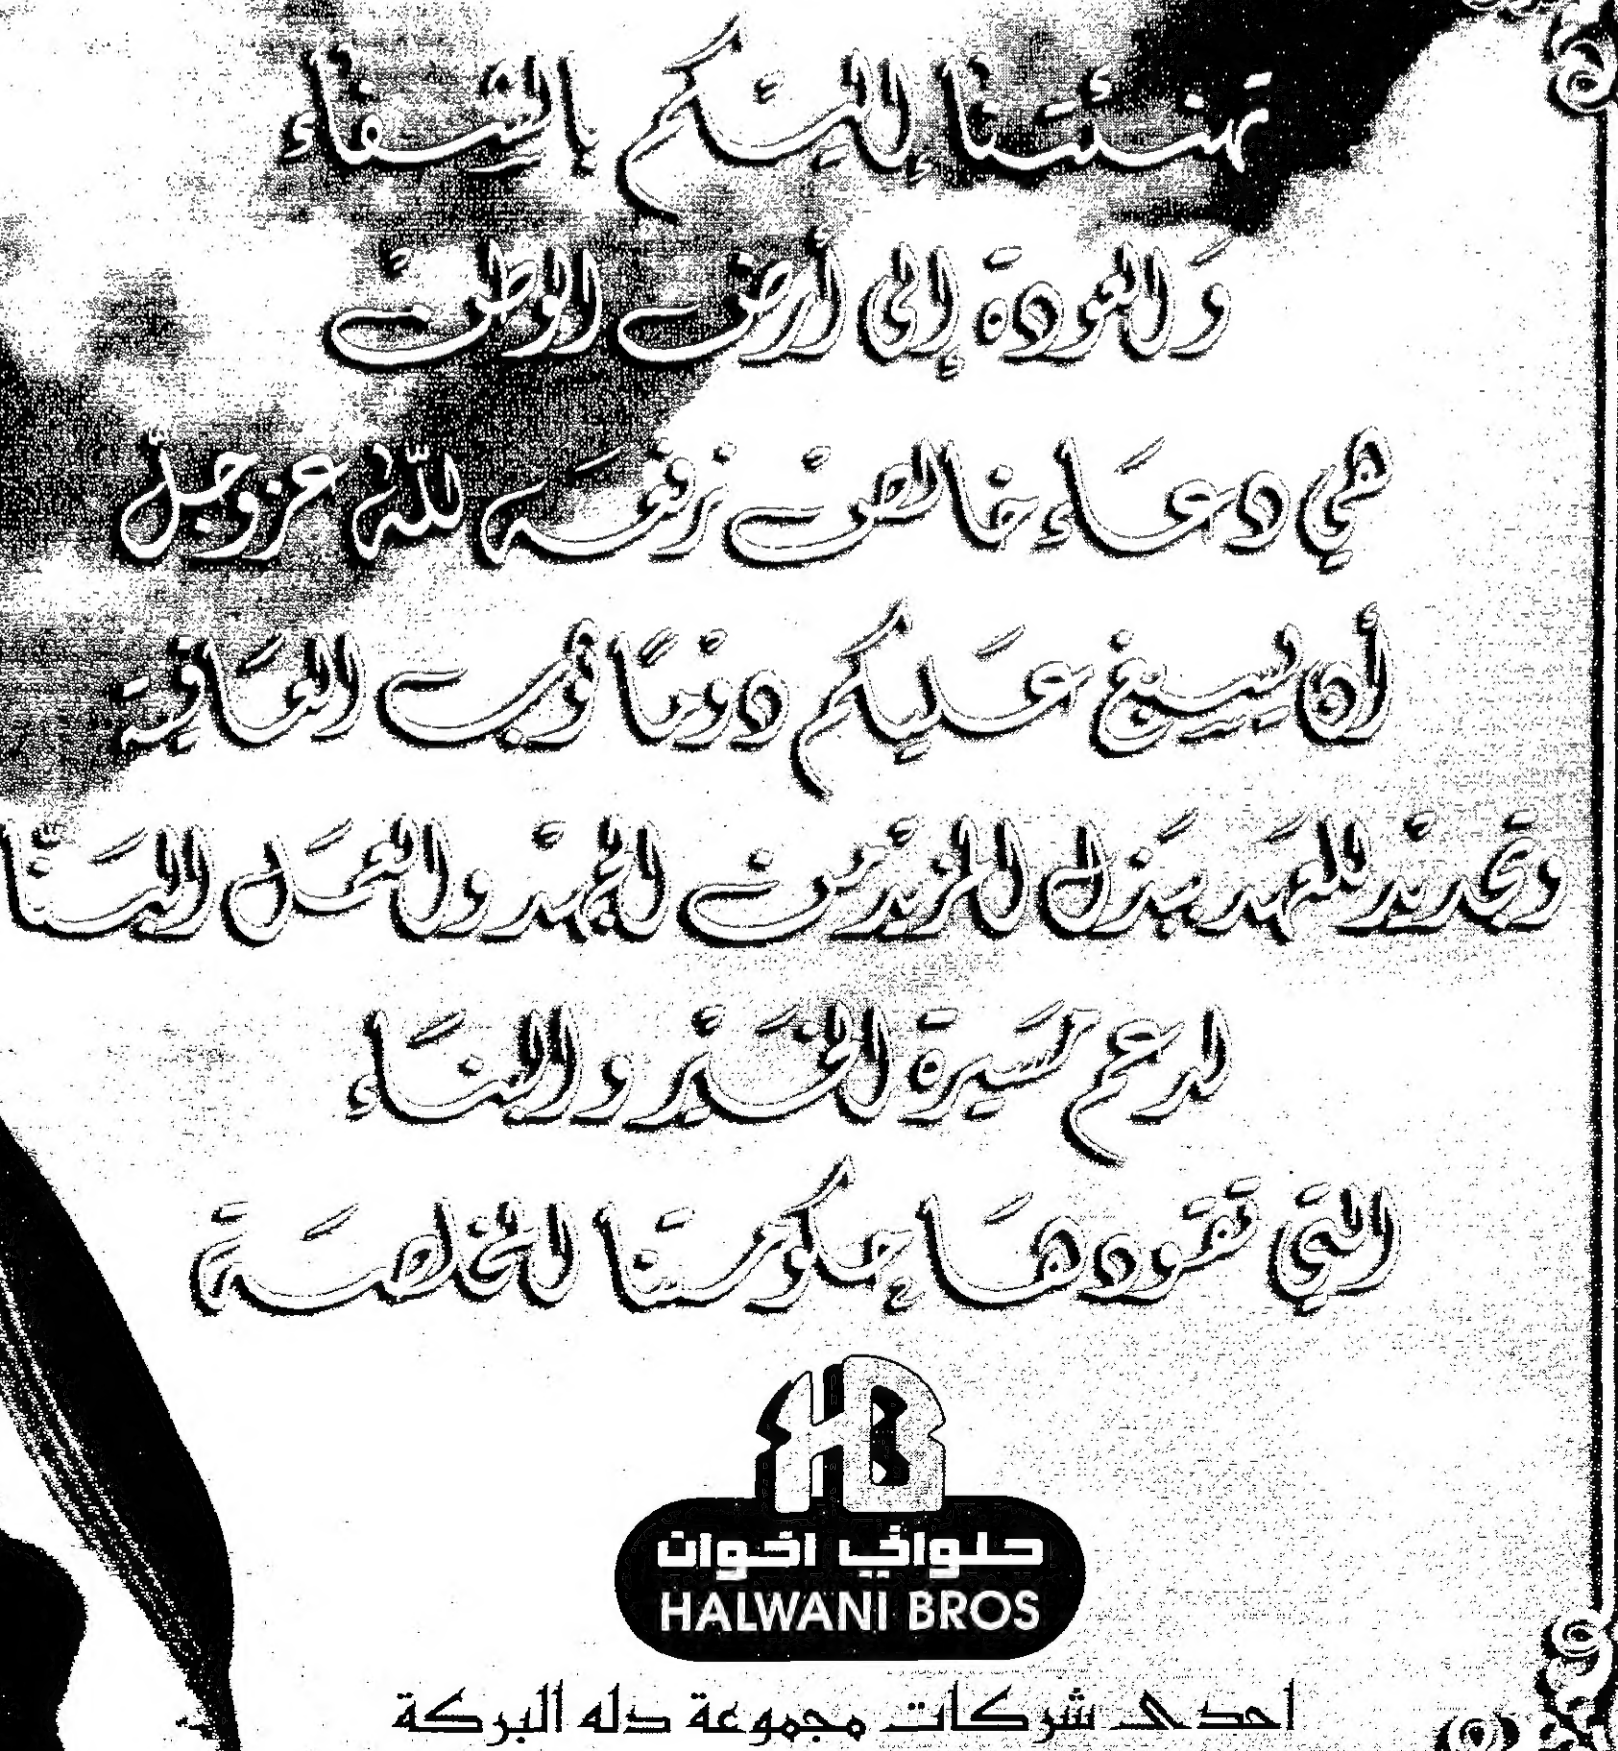 تهنئتنا إليكم بالشفاء
والعودة إلى أرض الوطن
هي دعاء خالص نرفعه لله عز وجل
أن يسبغ عليكم دومًا ثوب العافية
وتجديد للعهد ببذل المزيد من الجهد والعمل البنّا
لدعم مسيرة الخير والبناء
التي تقودها حكومتنا المخلصة
HB
حلواني اخوان
HALWANI BROS
احدى شركات مجموعة دله البركة